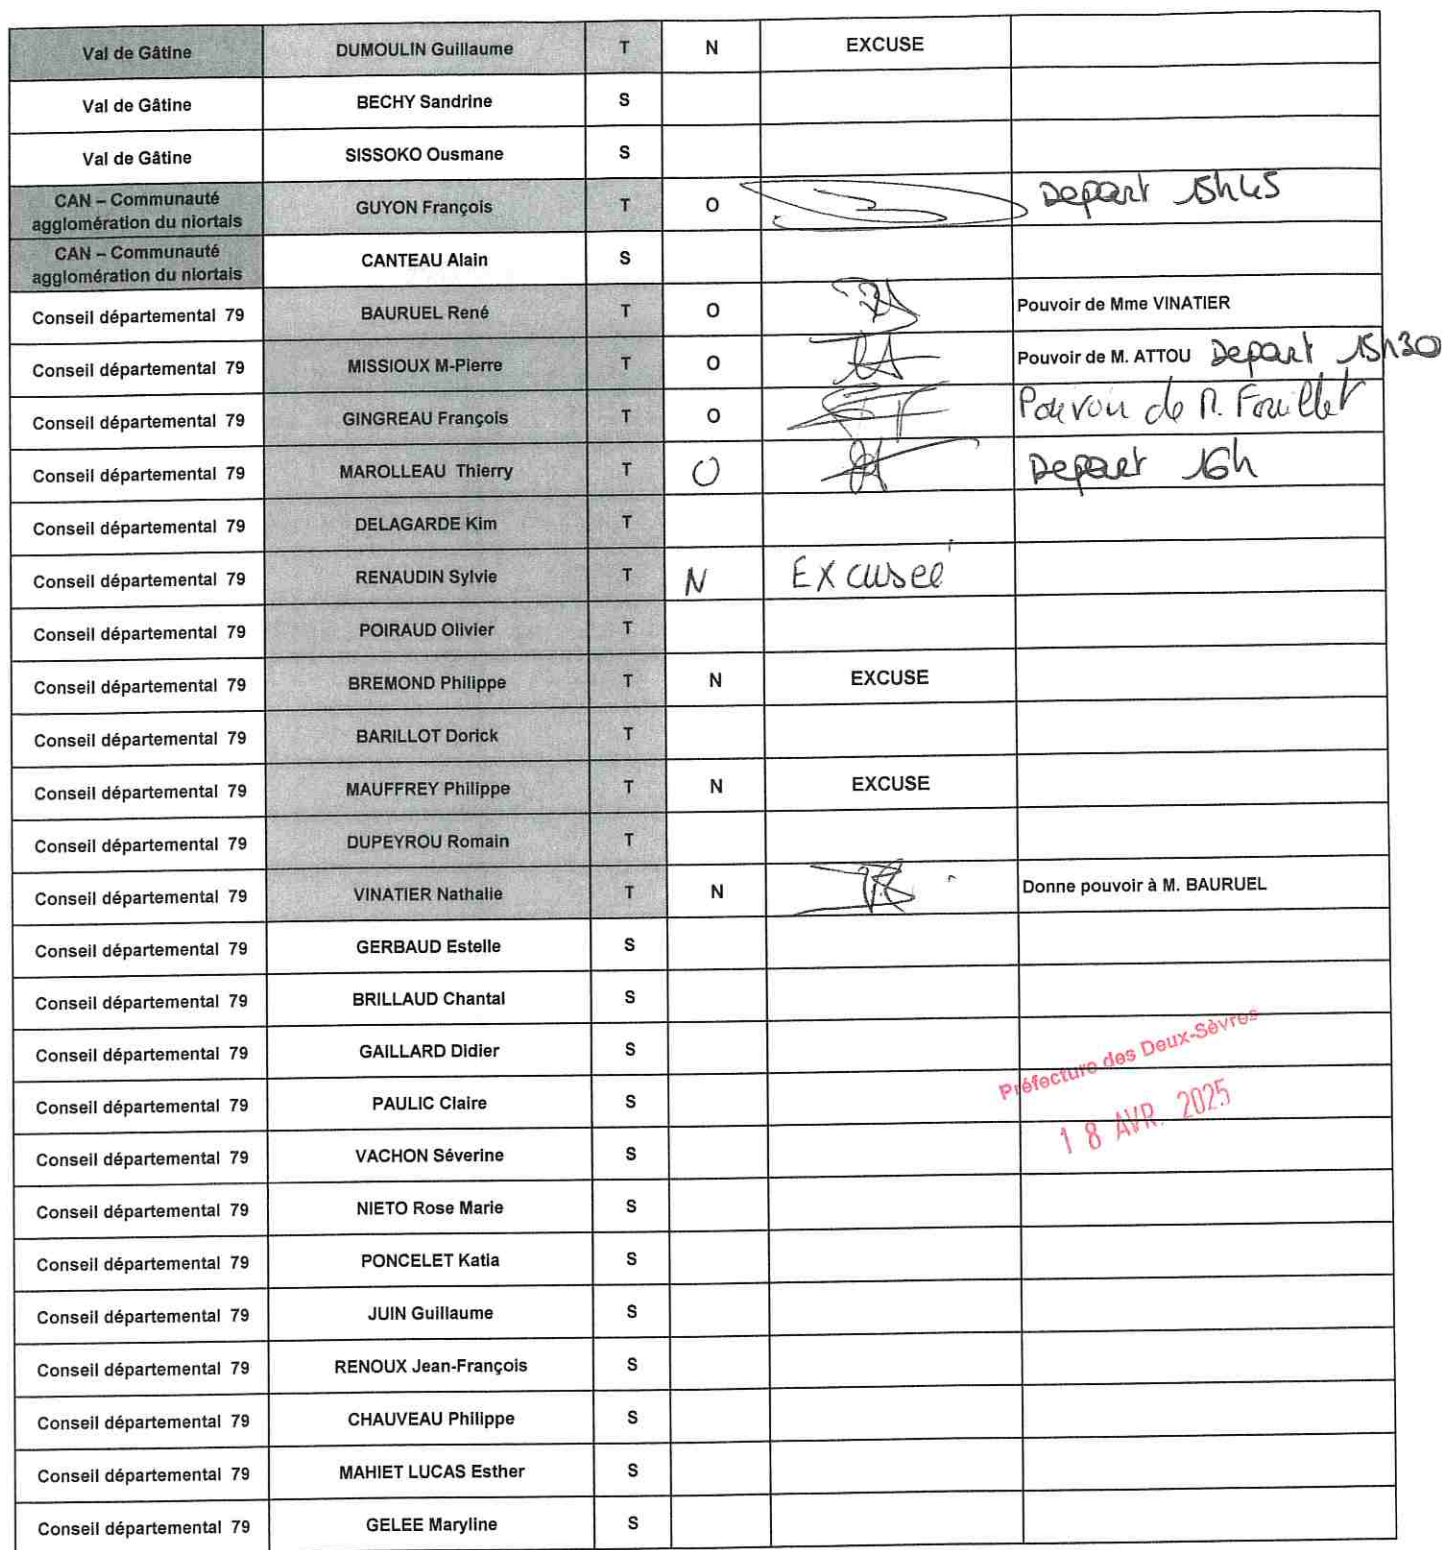 Val de Gâtine DUMOULIN Guillaume T N EXCUSE
Val de Gâtine BECHY Sandrine S
Val de Gâtine SISSOKO Ousmane S
CAN – Communauté
agglomération du niortais GUYON François T O Depart 15h45
CAN – Communauté
agglomération du niortais CANTEAU Alain S
Conseil départemental 79 BAURUEL René T O Pouvoir de Mme VINATIER
Conseil départemental 79 MISSIOUX M-Pierre T O Pouvoir de M. ATTOU Depart 15h30
Conseil départemental 79 GINGREAU François T O Pouvoir de M. Fouillet
Conseil départemental 79 MAROLLEAU Thierry T O Depart 16h
Conseil départemental 79 DELAGARDE Kim T
Conseil départemental 79 RENAUDIN Sylvie T N Excusée
Conseil départemental 79 POIRAUD Olivier T
Conseil départemental 79 BREMOND Philippe T N EXCUSE
Conseil départemental 79 BARILLOT Dorick T
Conseil départemental 79 MAUFFREY Philippe T N EXCUSE
Conseil départemental 79 DUPEYROU Romain T
Conseil départemental 79 VINATIER Nathalie T N Donne pouvoir à M. BAURUEL
Conseil départemental 79 GERBAUD Estelle S
Conseil départemental 79 BRILLAUD Chantal S
Conseil départemental 79 GAILLARD Didier S
Préfecture des Deux-Sèvres
Conseil départemental 79 PAULIC Claire S
18 AVR. 2025
Conseil départemental 79 VACHON Séverine S
Conseil départemental 79 NIETO Rose Marie S
Conseil départemental 79 PONCELET Katia S
Conseil départemental 79 JUIN Guillaume S
Conseil départemental 79 RENOUX Jean-François S
Conseil départemental 79 CHAUVEAU Philippe S
Conseil départemental 79 MAHIET LUCAS Esther S
Conseil départemental 79 GELEE Maryline S